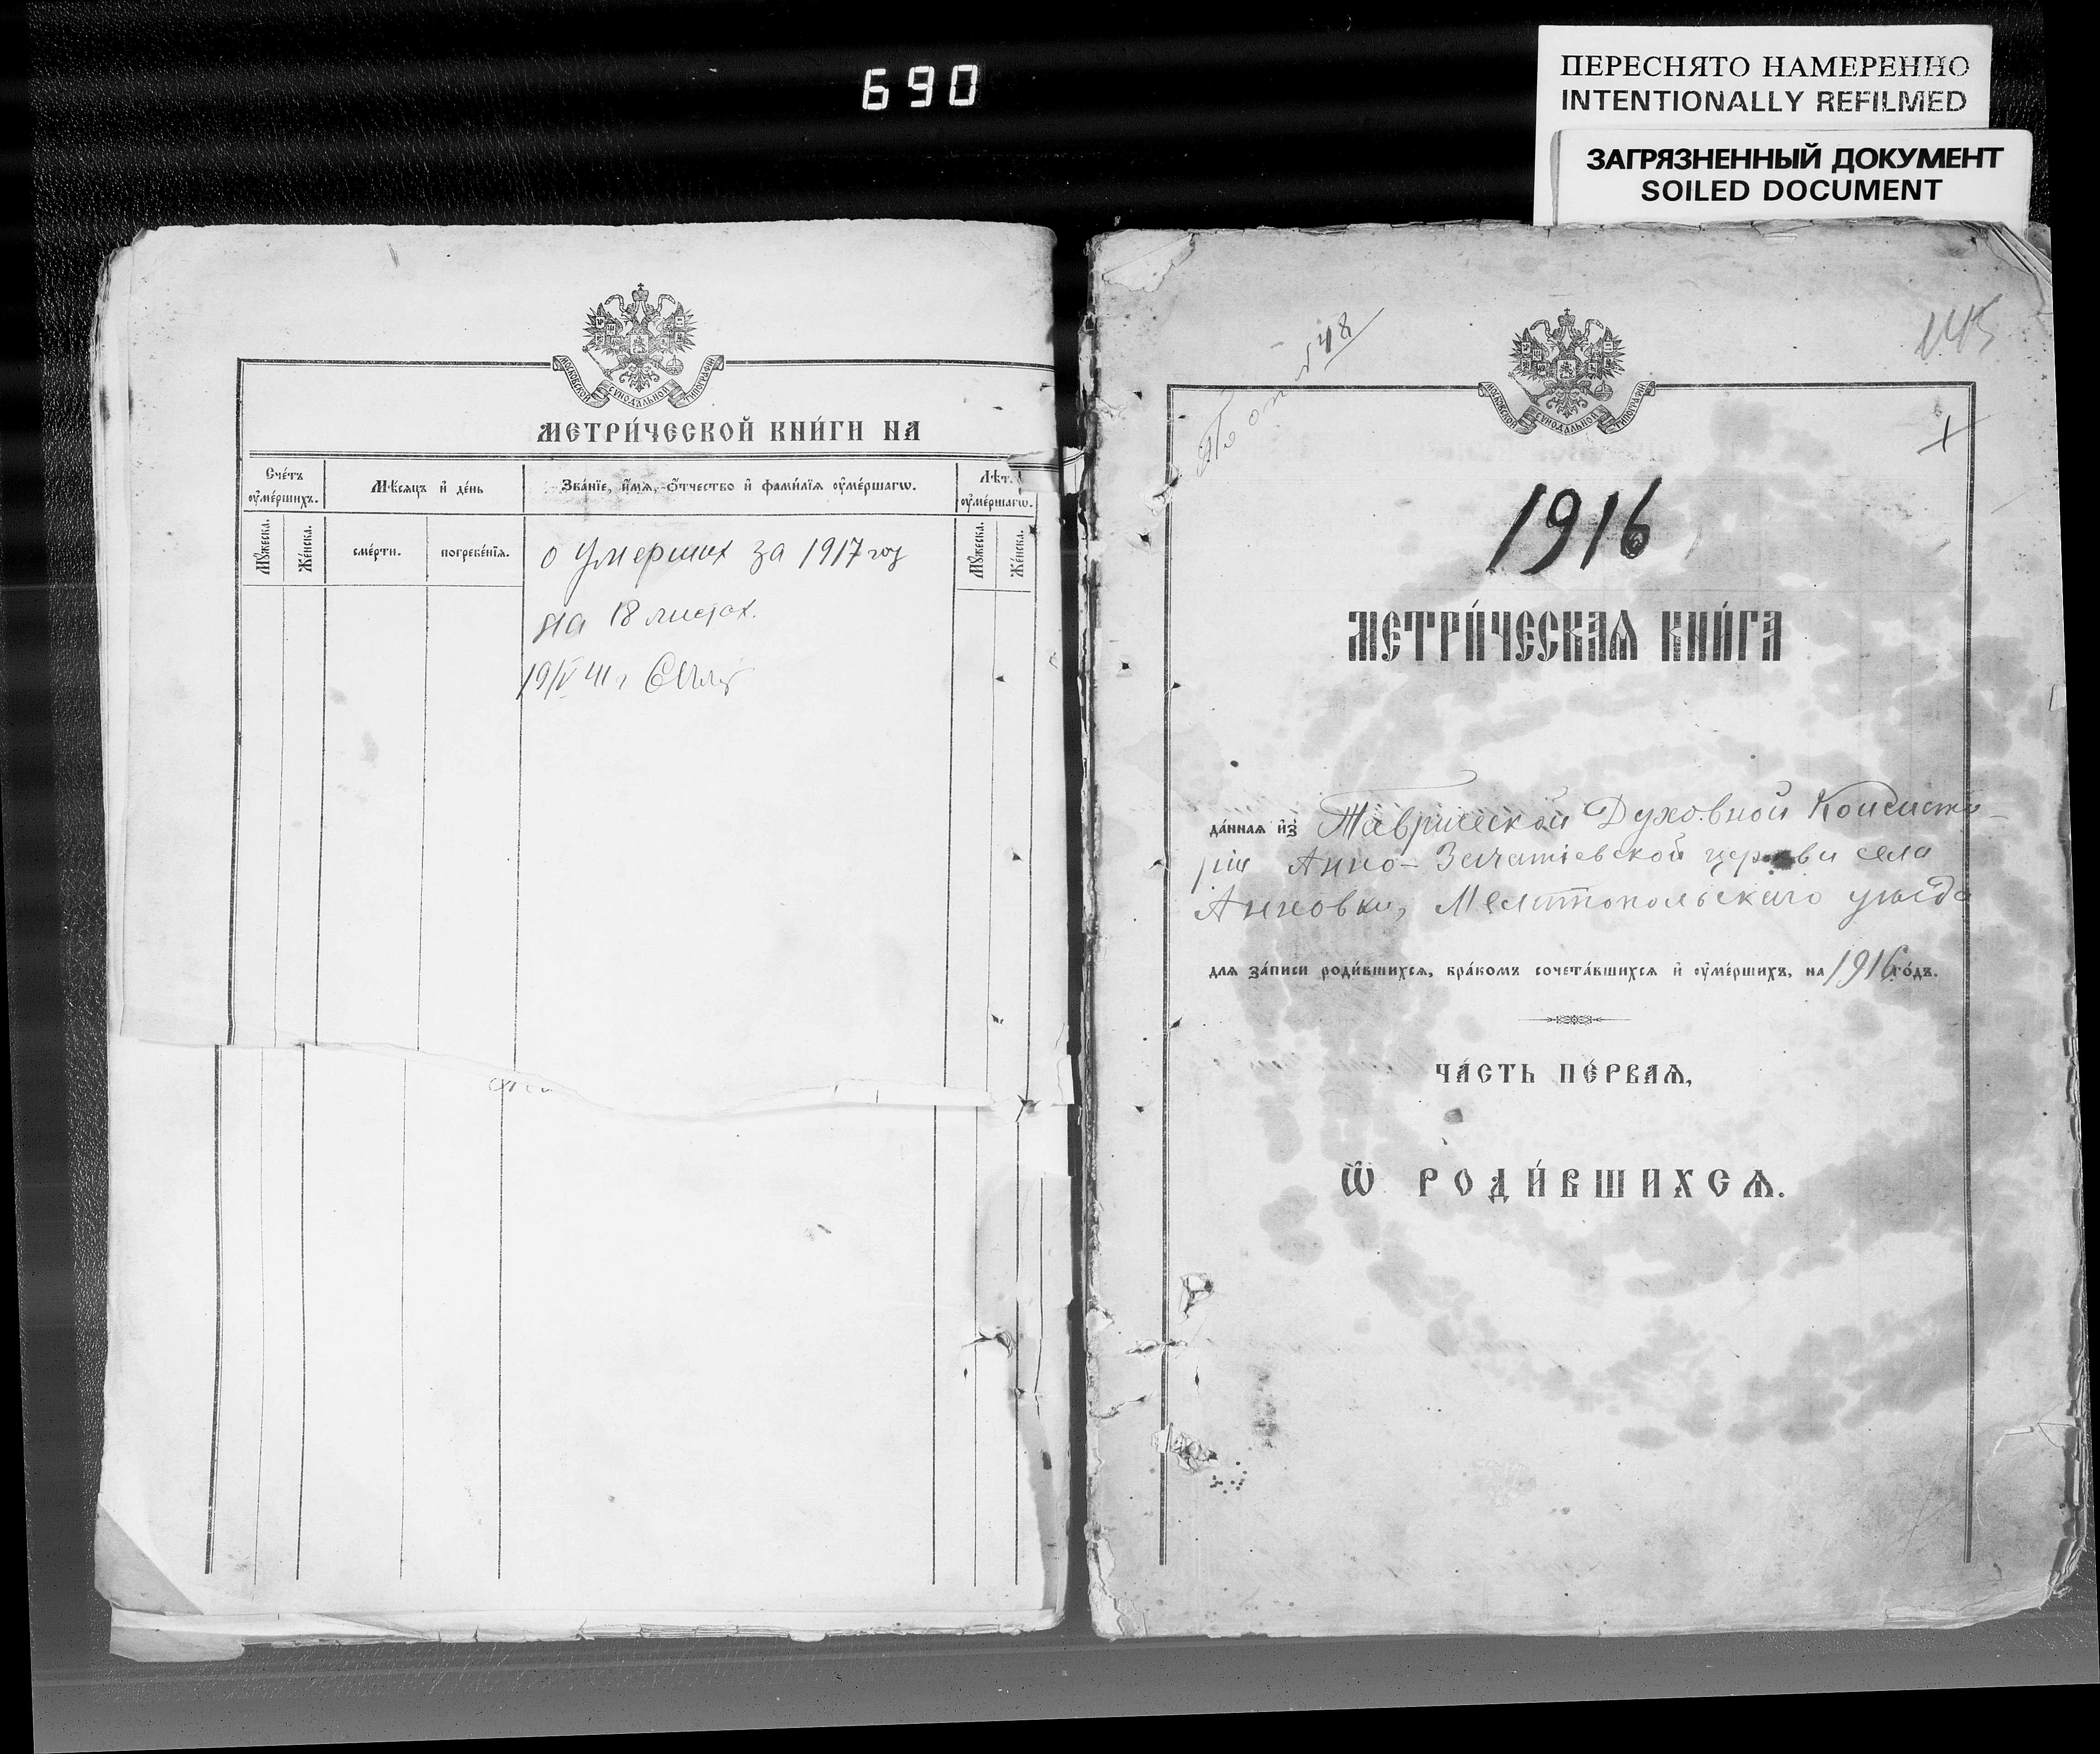 690
ПЕРЕСНЯТО НАМЕРЕННО
INTENTIONALLY REFILMED
ЗАГРЯЗНЕННЫЙ ДОКУМЕНТ
SOILED DOCUMENT
МОСКОВСКОЙ СѴНОДАЛЬНОЙ ТИПОГРАФІИ
МЕТРИ́ЧЕСКОЙ КНИ́ГИ НА
Сче́тъ ᲂу҆ме́ршихъ.
Мѣ́сяцъ и҆ де́нь
Зва́нїе, и҆́мѧ, ѻ҆́тчество и҆ фами́лїѧ ᲂу҆ме́ршагѡ.
Лѣт.
ᲂу҆ме́ршагѡ.
Мꙋ́жеска.
Же́нска.
сме́рти.
погребе́нїѧ.
Мꙋ́жеска.
Же́нска.
о умерших за 1917 год
на 18 листах.
19/V 41 г
145
№ 48
МОСКОВСКОЙ СѴНОДАЛЬНОЙ ТИПОГРАФІИ
1916
МЕТРИ́ЧЕСКАѦ КНИ́ГА
да́ннаѧ и҆з̾ Таврической Духовной Консисто-
ріи Анно-Зачатіевской церкви села
Анновки, Мелитопольскаго уѣзда
длѧ за́писи роди́вшихсѧ, бра́комъ сочета́вшихсѧ и҆ ᲂу҆ме́ршихъ, на 1916 го́дъ.
ЧА́СТЬ ПЕ́РВАѦ,
Ѽ РОДИ́ВШИХСѦ.